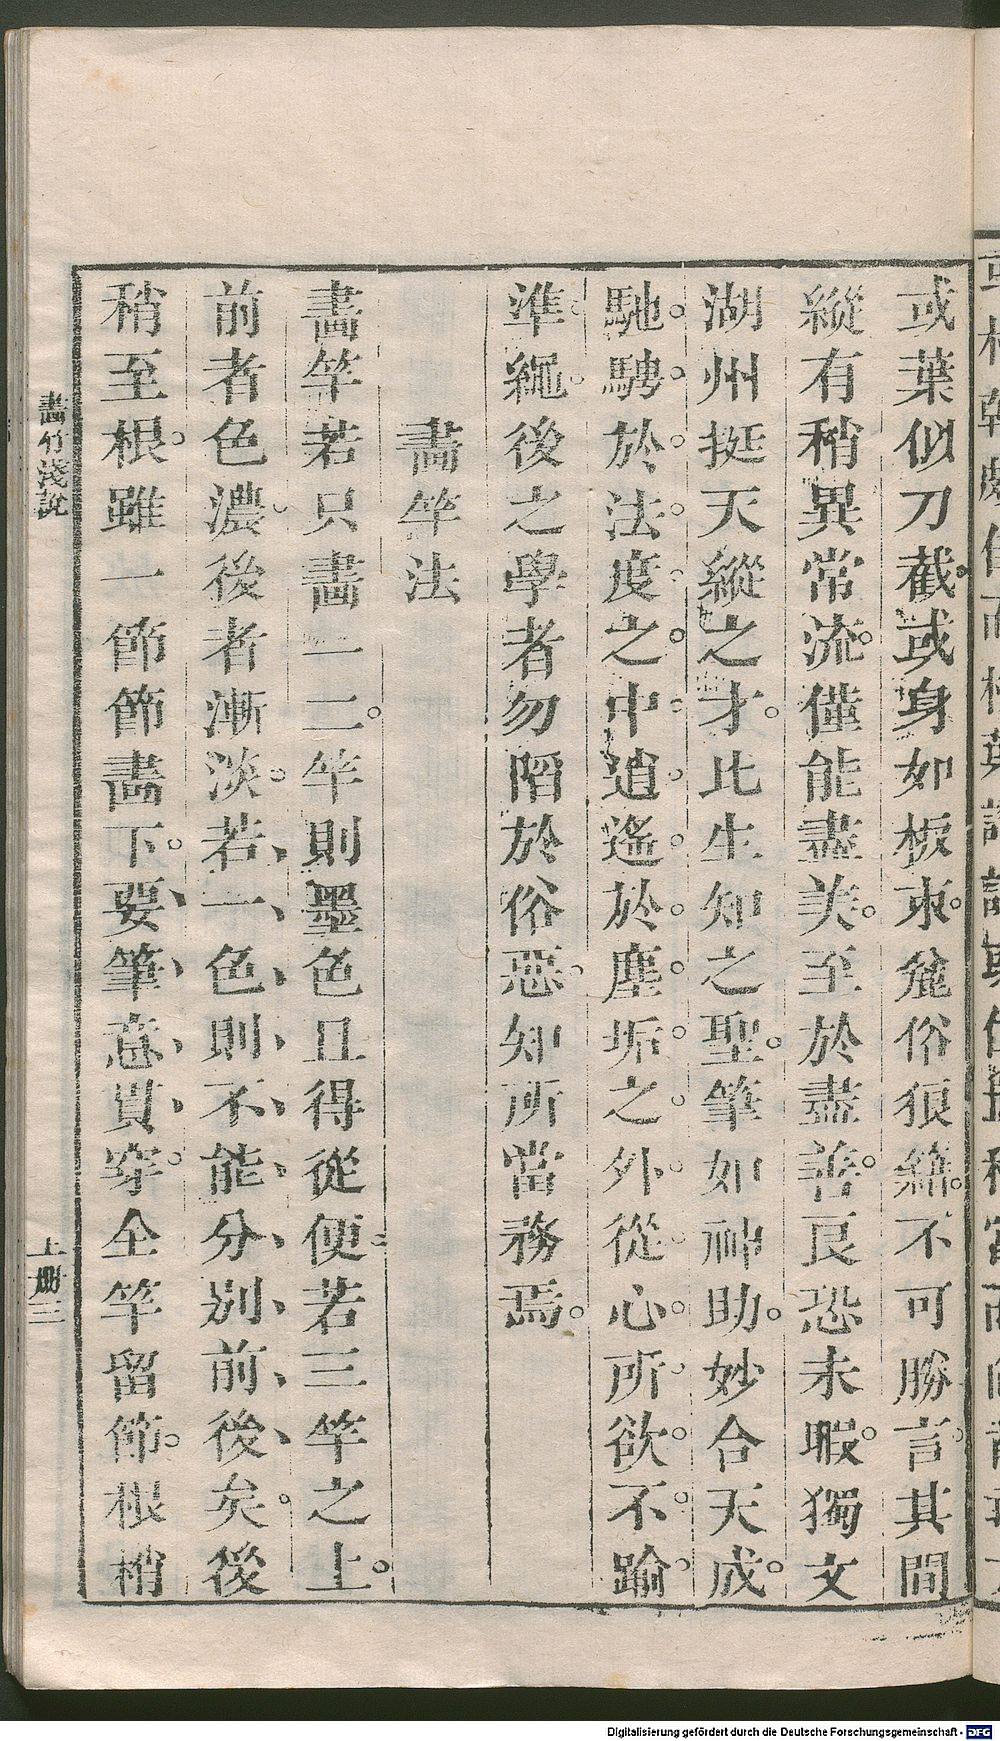 或葉似刀截或身如板束麄俗狼藉不可勝言其間
縱有稍異常流僅能盡美至於盡善良恐未暇獨文
湖州挺天縱之才比生知之聖筆如神助妙合天成
馳騁於法度之中逍遙於塵垢之外從心所欲不踰
準繩後之學者勿陷於俗惡知所當務焉
畫竿法
畫竿若只畫一二竿則墨色且得從便若三竿之上
前者色濃後者漸淡若一色則不能分別前後矣後
稍至根雖一節節畫下要筆意貫穿全竿留節根梢
畫竹淺說
上冊三
Digitalisierung gefördert durch die Deutsche Forschungsgemeinschaft - DFG